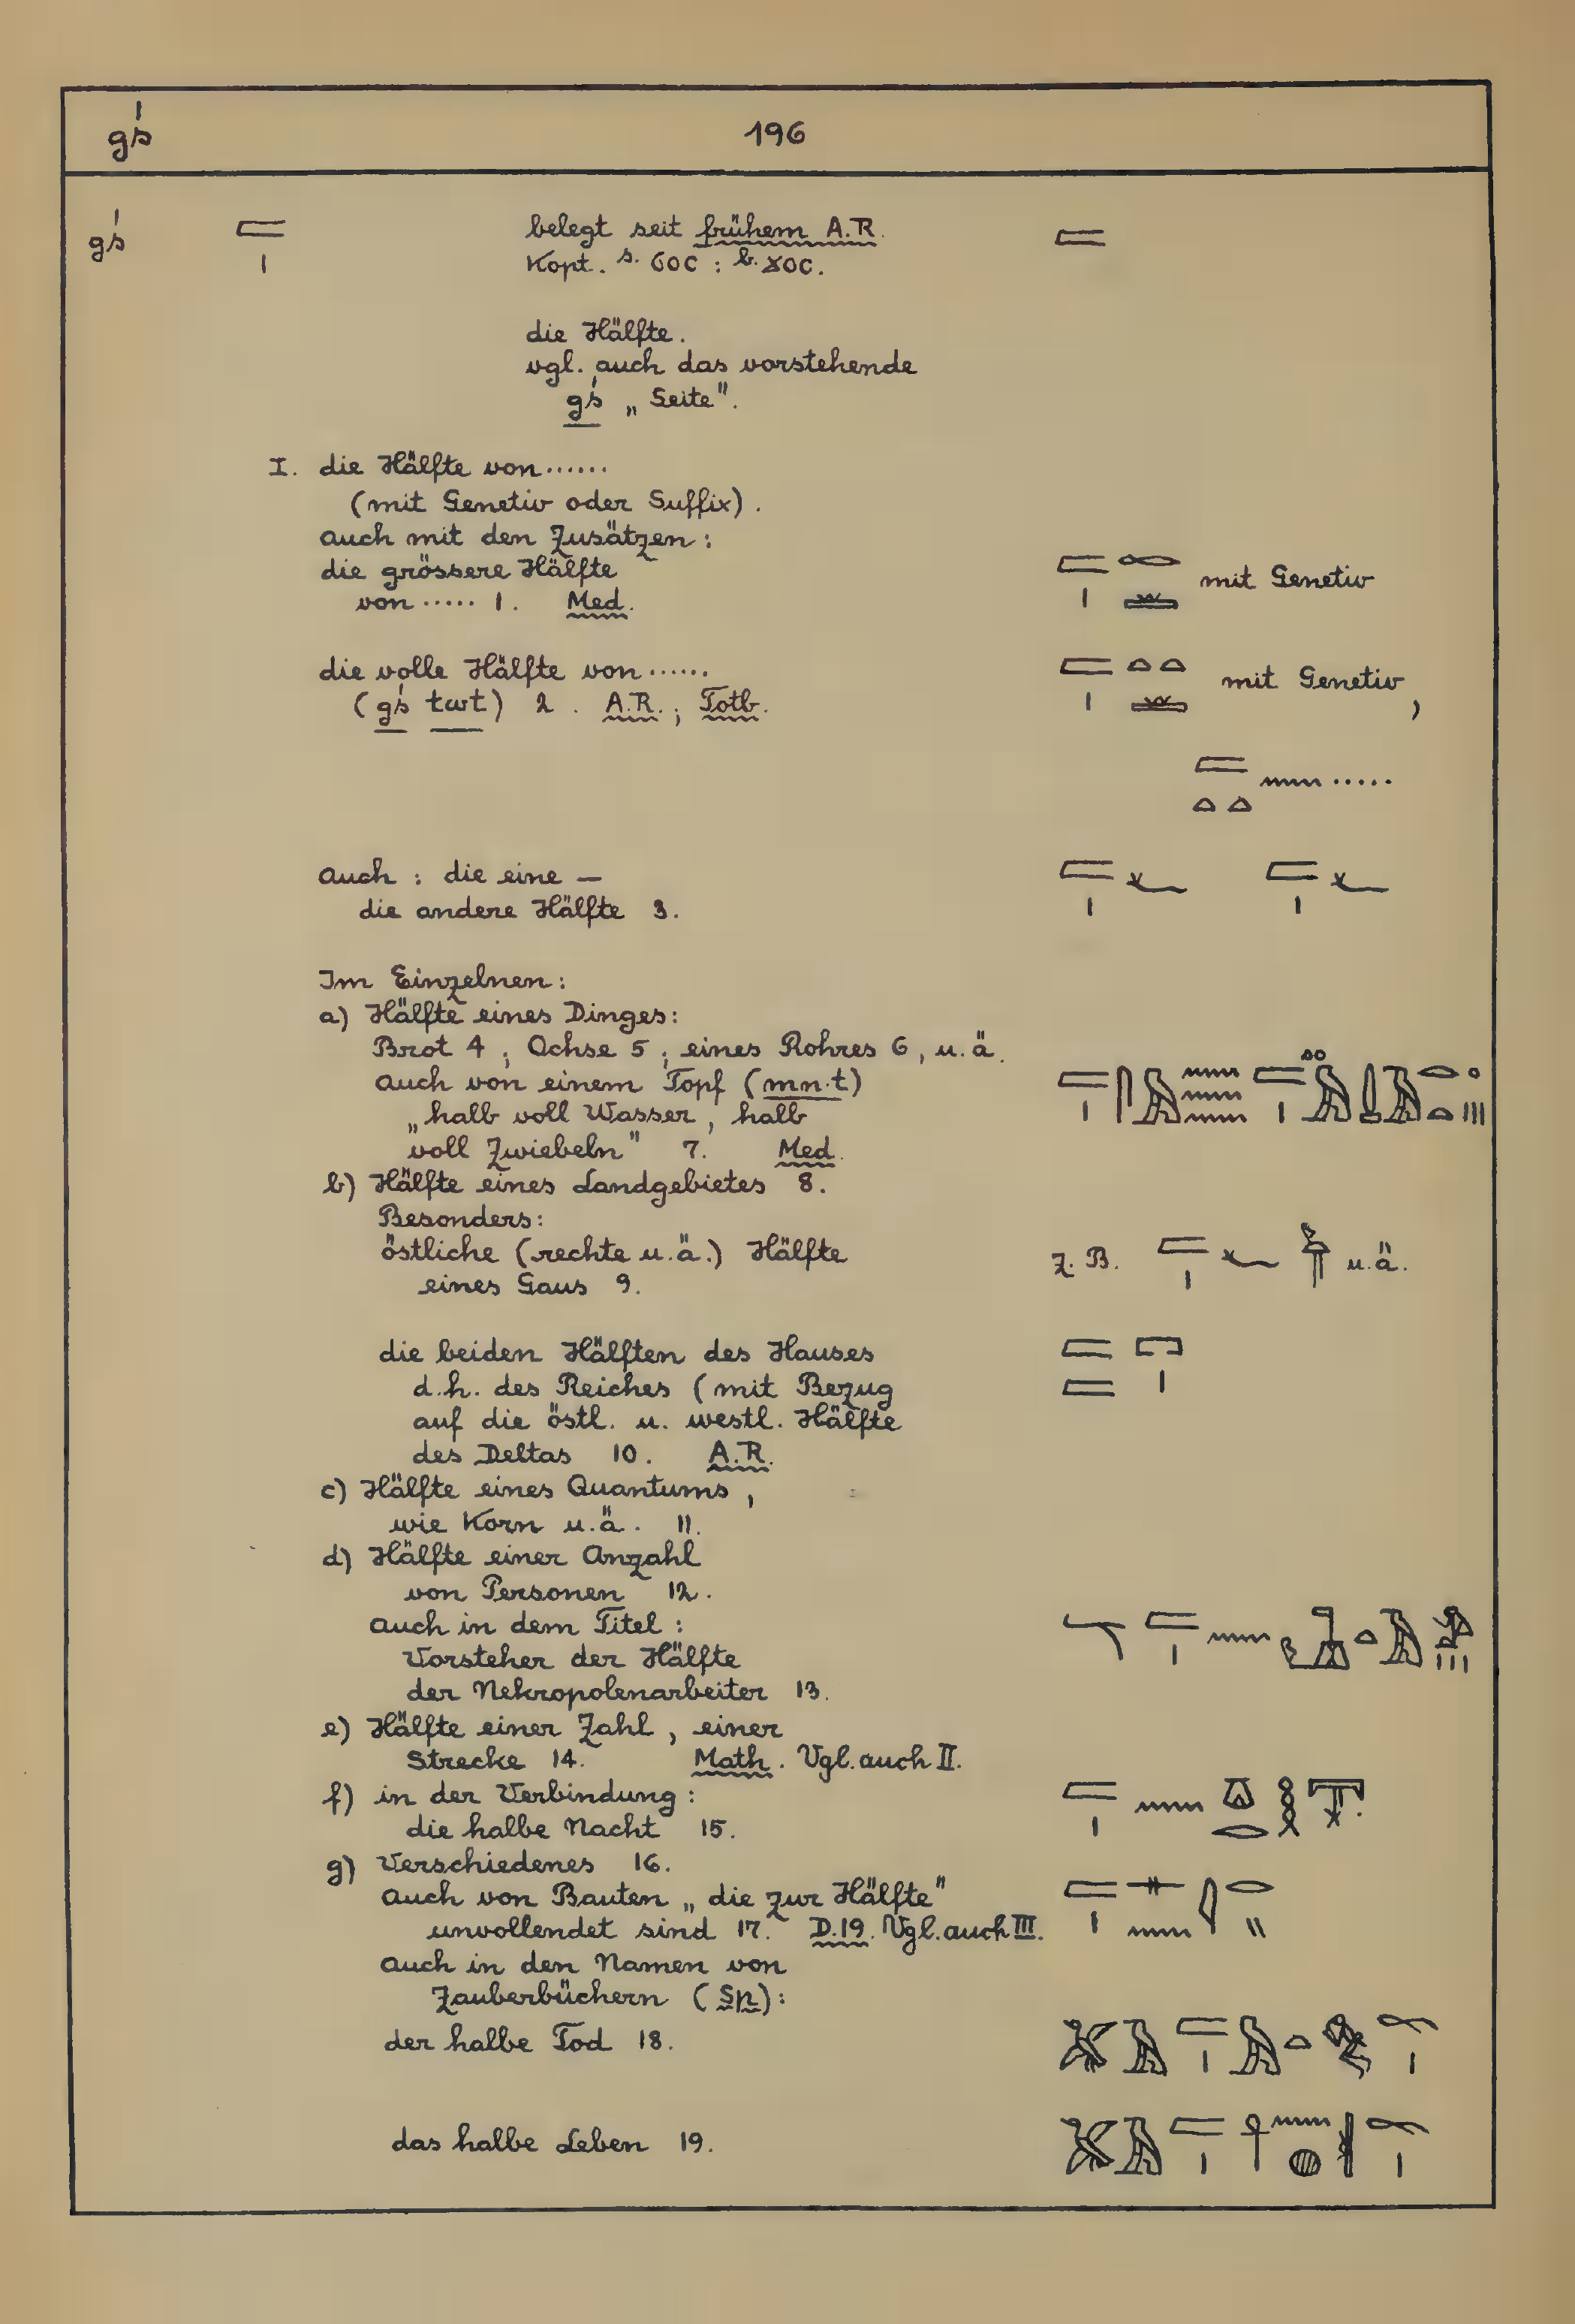 gś 196
gś belegt seit frühem A.R.
Kopt. s. ϭoc : b. ϫoc.
die Hälfte.
vgl. auch das vorstehende
gś „Seite".
I. die Hälfte von ......
(mit Genetiv oder Suffix).
auch mit den Zusätzen:
die grössere Hälfte mit Genetiv
von ..... 1. Med.
die volle Hälfte von ...... mit Genetiv,
(gś twt) 2. A.R.; Totb.
.....
auch: die eine —
die andere Hälfte 3.
Im Einzelnen:
a) Hälfte eines Dinges:
Brot 4; Ochse 5; eines Rohres 6, u.ä.
auch von einem Topf (mn.t)
„halb voll Wasser, halb
voll Zwiebeln" 7. Med.
b) Hälfte eines Landgebietes 8.
Besonders:
östliche (rechte u.ä.) Hälfte z.B. u.ä.
eines Gaus 9.
die beiden Hälften des Hauses
d.h. des Reiches (mit Bezug
auf die östl. u. westl. Hälfte
des Deltas 10. A.R.
c) Hälfte eines Quantums,
wie Korn u.ä. 11.
d) Hälfte einer Anzahl
von Personen 12.
auch in dem Titel:
Vorsteher der Hälfte
der Nekropolenarbeiter 13.
e) Hälfte einer Zahl, einer
Strecke 14. Math. Vgl. auch II.
f) in der Verbindung:
die halbe Nacht 15.
g) Verschiedenes 16.
auch von Bauten „die zur Hälfte"
unvollendet sind 17. D.19. Vgl. auch III.
auch in den Namen von
Zauberbüchern (Sp):
der halbe Tod 18.
das halbe Leben 19.